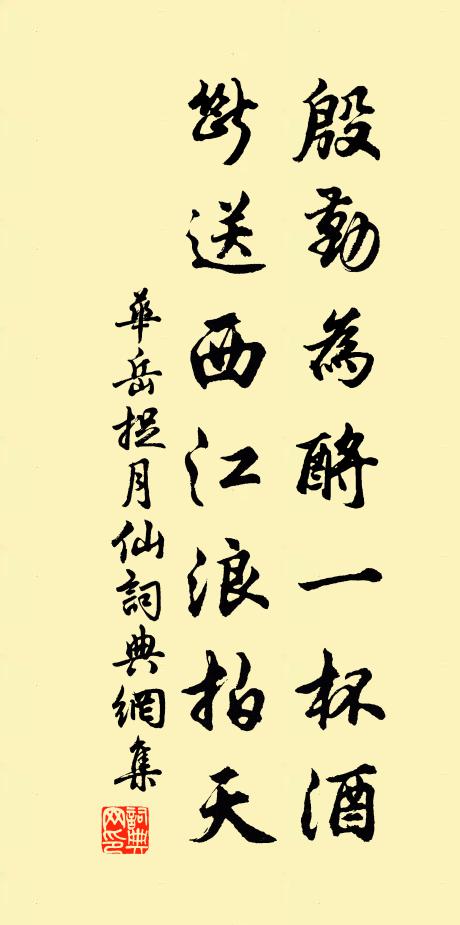 殷勤為酹一杯酒
斷送西江浪拍天
華岳捉月仙詞典網集
詞典网印